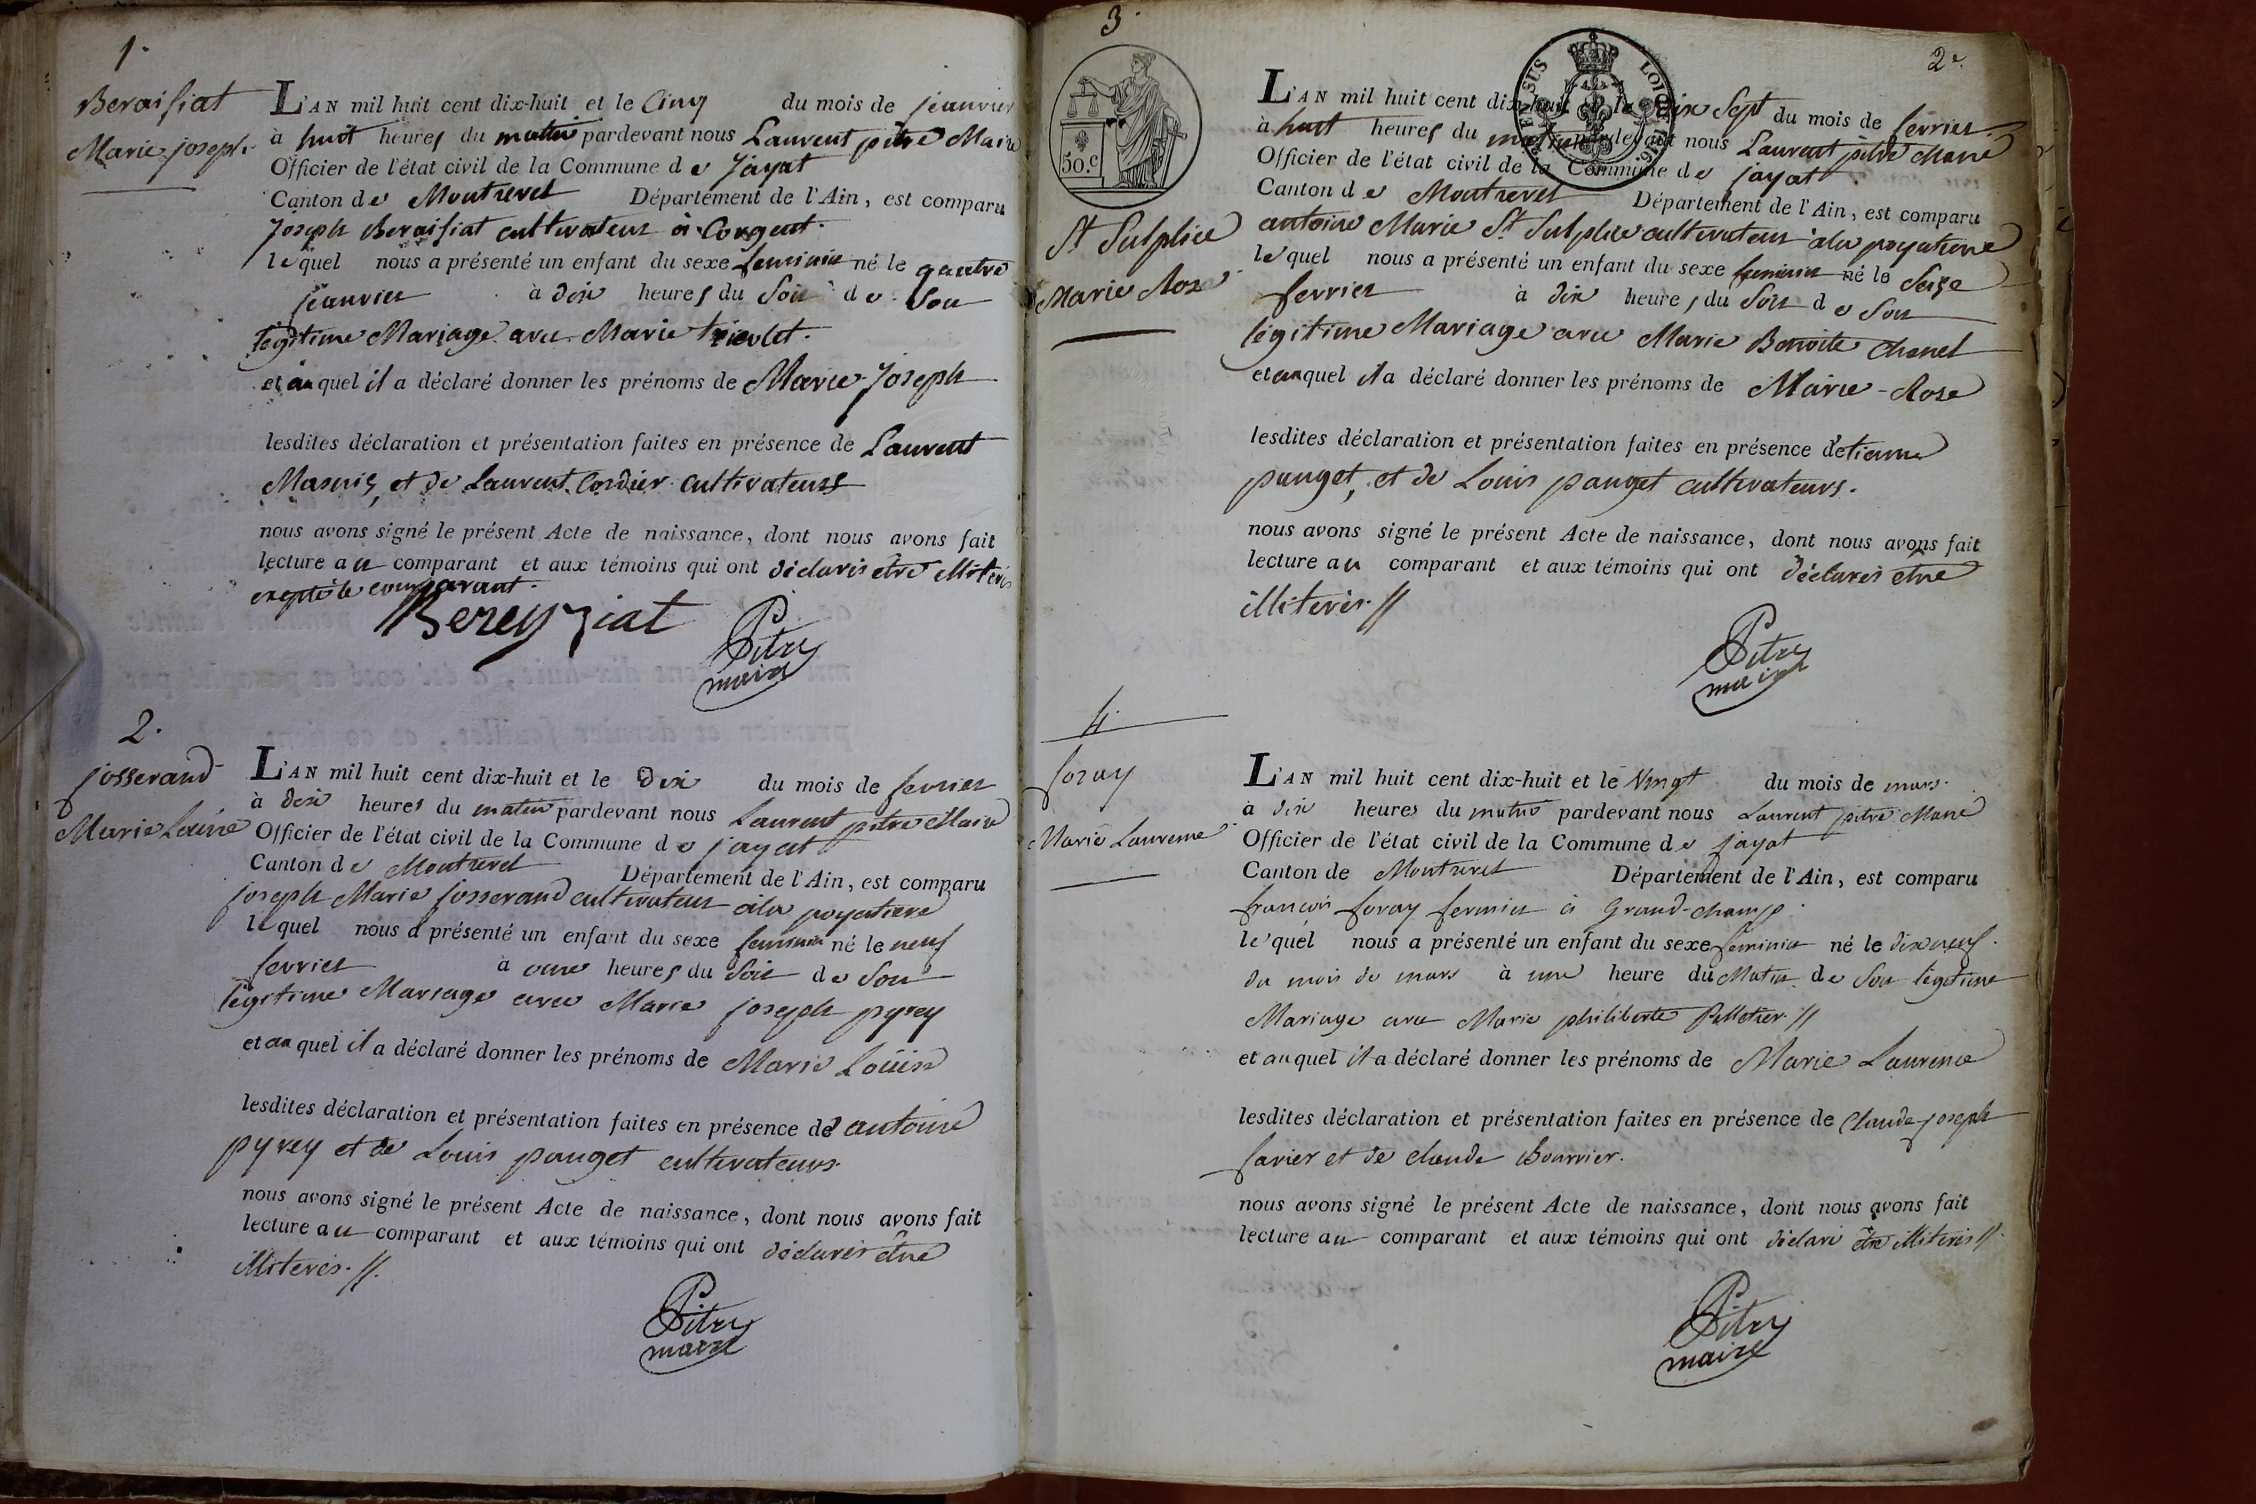 1.
Beraisiat
Marie joseph.
L'AN mil huit cent dix-huit et le Cinq du mois de jeanvier
à huit heures du matin pardevant nous Laurent pitre Maire
Officier de l'état civil de la Commune de Jayat
Canton de Montrevel Département de l'Ain, est comparu
Joseph Beraisiat cultivateur à Congent.
lequel nous a présenté un enfant du sexe feminin né le quatre
jeanvier à dix heures du Soir de Son
légitime Mariage avec Marie
et auquel il a déclaré donner les prénoms de Marie Joseph
lesdites déclaration et présentation faites en présence de Laurent
et de Laurent Cordier cultivateurs
nous avons signé le présent Acte de naissance, dont nous avons fait
lecture au comparant et aux témoins qui ont déclarés etre illiterés
excepté le comparant.
Bereyziat
Pitre
maire
2.
josserand
Marie Louise
L'AN mil huit cent dix-huit et le Dix du mois de fevrier
à dix heures du matin pardevant nous Laurent pitre Maire
Officier de l'état civil de la Commune de jayat
Canton de Montrevel Département de l'Ain, est comparu
joseph Marie josserand cultivateur àla poyatiere
lequel nous a présenté un enfant du sexe feminin né le neuf
fevrier à onze heures du Soir de Son
légitime Mariage avec Marie joseph pyrey
et auquel il a déclaré donner les prénoms de Marie Louise
lesdites déclaration et présentation faites en présence de antoine
pyrey et de Louis pauget cultivateurs.
nous avons signé le présent Acte de naissance, dont nous avons fait
lecture au comparant et aux témoins qui ont déclarés être
illiterés.//.
Pitre
maire
3.
2e.
50.c
St Sulplice
Marie Rose
L'AN mil huit cent dix-huit et le dix Sept du mois de fevrier.
à huit heures du matin pardevant nous Laurent pitre Maire
Officier de l'état civil de la Commune de jayat
Canton de Montrevel Département de l'Ain, est comparu
antoine Marie St Sulplice cultivateur àla poyatiere
lequel nous a présenté un enfant du sexe feminin né le Seize
fevrier à dix heures du Soir de Son
légitime Mariage avec Marie Benoite Chanel
et auquel il a déclaré donner les prénoms de Marie-Rose
lesdites déclaration et présentation faites en présence detienne
pauget, et de Louis pauget cultivateurs.
nous avons signé le présent Acte de naissance, dont nous avons fait
lecture au comparant et aux témoins qui ont déclarés être
illiterés.//
Pitre
maire
4.
foray
Marie Laurence
L'AN mil huit cent dix-huit et le Vingt du mois de mars.
à dix heures du matin pardevant nous Laurent pitre Maire
Officier de l'état civil de la Commune de jayat
Canton de Montrevel Département de l'Ain, est comparu
françois foray fermier à Grand-champ.
lequel nous a présenté un enfant du sexe feminin né le dixneuf.
du mois de mars à une heure du Matin de Son légitime
Mariage avec Marie philiberte Pelletier.//
et auquel il a déclaré donner les prénoms de Marie Laurence
lesdites déclaration et présentation faites en présence de Claude joseph
favier et de claude Bouvier.
nous avons signé le présent Acte de naissance, dont nous avons fait
lecture au comparant et aux témoins qui ont déclaré être illiterés//.
Pitre
maire